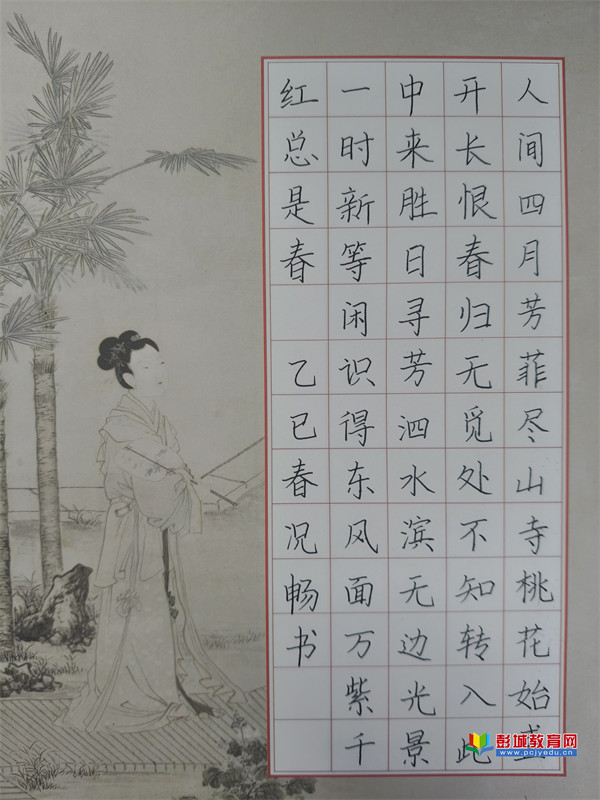 人间四月芳菲尽山寺桃花始盛
开长恨春归无觅处不知转入此
中来胜日寻芳泗水滨无边光景
一时新等闲识得东风面万紫千
红总是春 乙巳春况畅书
彭城教育网
www.pcjyedu.cn